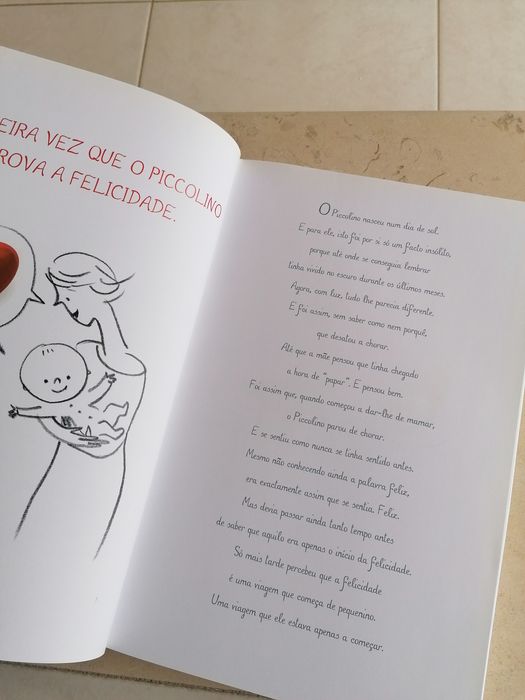 EIRA VEZ QUE O PICCOLINO
ROVA A FELICIDADE.
O Piccolino nasceu num dia de sol.
E para ele, isto foi por si só um facto insólito,
porque até onde se conseguia lembrar
tinha vivido no escuro durante os últimos meses.
Agora, com luz, tudo lhe parecia diferente.
E foi assim, sem saber como nem porquê,
que desatou a chorar.
Até que a mãe pensou que tinha chegado
a hora de "papar". E pensou bem.
Foi assim que, quando começou a dar-lhe de mamar,
o Piccolino parou de chorar.
E se sentiu como nunca se tinha sentido antes.
Mesmo não conhecendo ainda a palavra feliz,
era exactamente assim que se sentia. Feliz.
Mas devia passar ainda tanto tempo antes
de saber que aquilo era apenas o início da felicidade.
Só mais tarde percebeu que a felicidade
é uma viagem que começa de pequenino.
Uma viagem que ele estava apenas a começar.